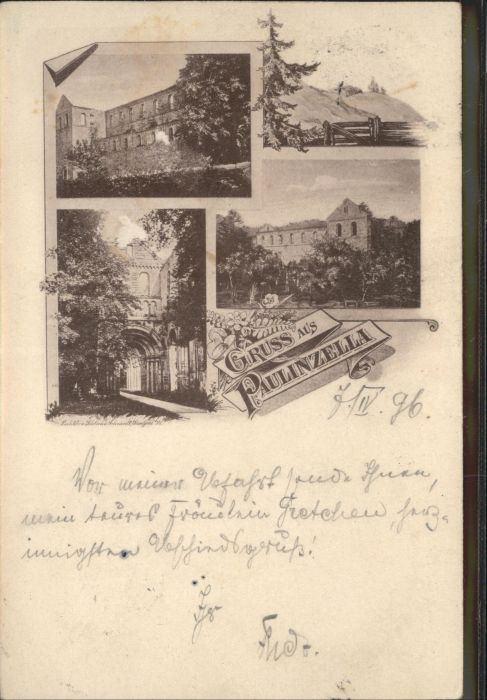 GRUSS AUS
PAULINZELLA
7/IV. 96.
Vor meiner Abfahrt sende Ihnen,
mein teures Fräulein Gretchen herz-
innigsten Abschiedsgruß!
Ihr